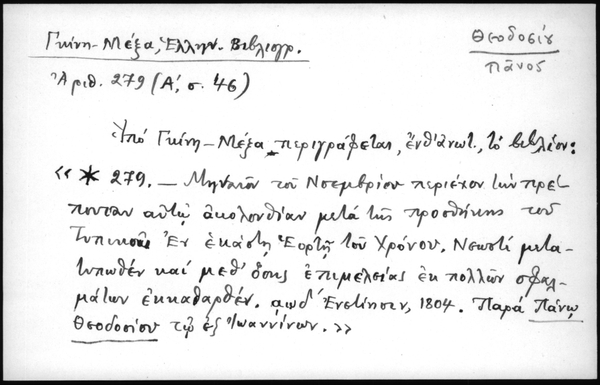 Γκίνη-Μέξα, Ἑλλην. Βιβλιογρ.
Θεοδοσίου
Πᾶνος
Ἀριθ. 279 (Α', σ. 46)
Ὑπό Γκίνη-Μέξα περιγράφεται, ἔνθ' ἀνωτ., τό βιβλίον:
«* 279. — Μηναῖον τοῦ Νοεμβρίου περιέχον τήν πρέ-
πουσαν αὐτῷ ἀκολουθίαν μετά τῆς προσθήκης τοῦ
Τυπικοῦ Ἐν ἑκάστῃ Ἑορτῇ τοῦ Χρόνου. Νεωστί μετα-
τυπωθέν καί μεθ' ὅσης ἐπιμελείας ἐκ πολλῶν σφαλ-
μάτων ἐκκαθαρθέν. ͵αωδ' Ἐνετίησιν, 1804. Παρά Πάνῳ
Θεοδοσίου τῷ ἐξ Ἰωαννίνων.»